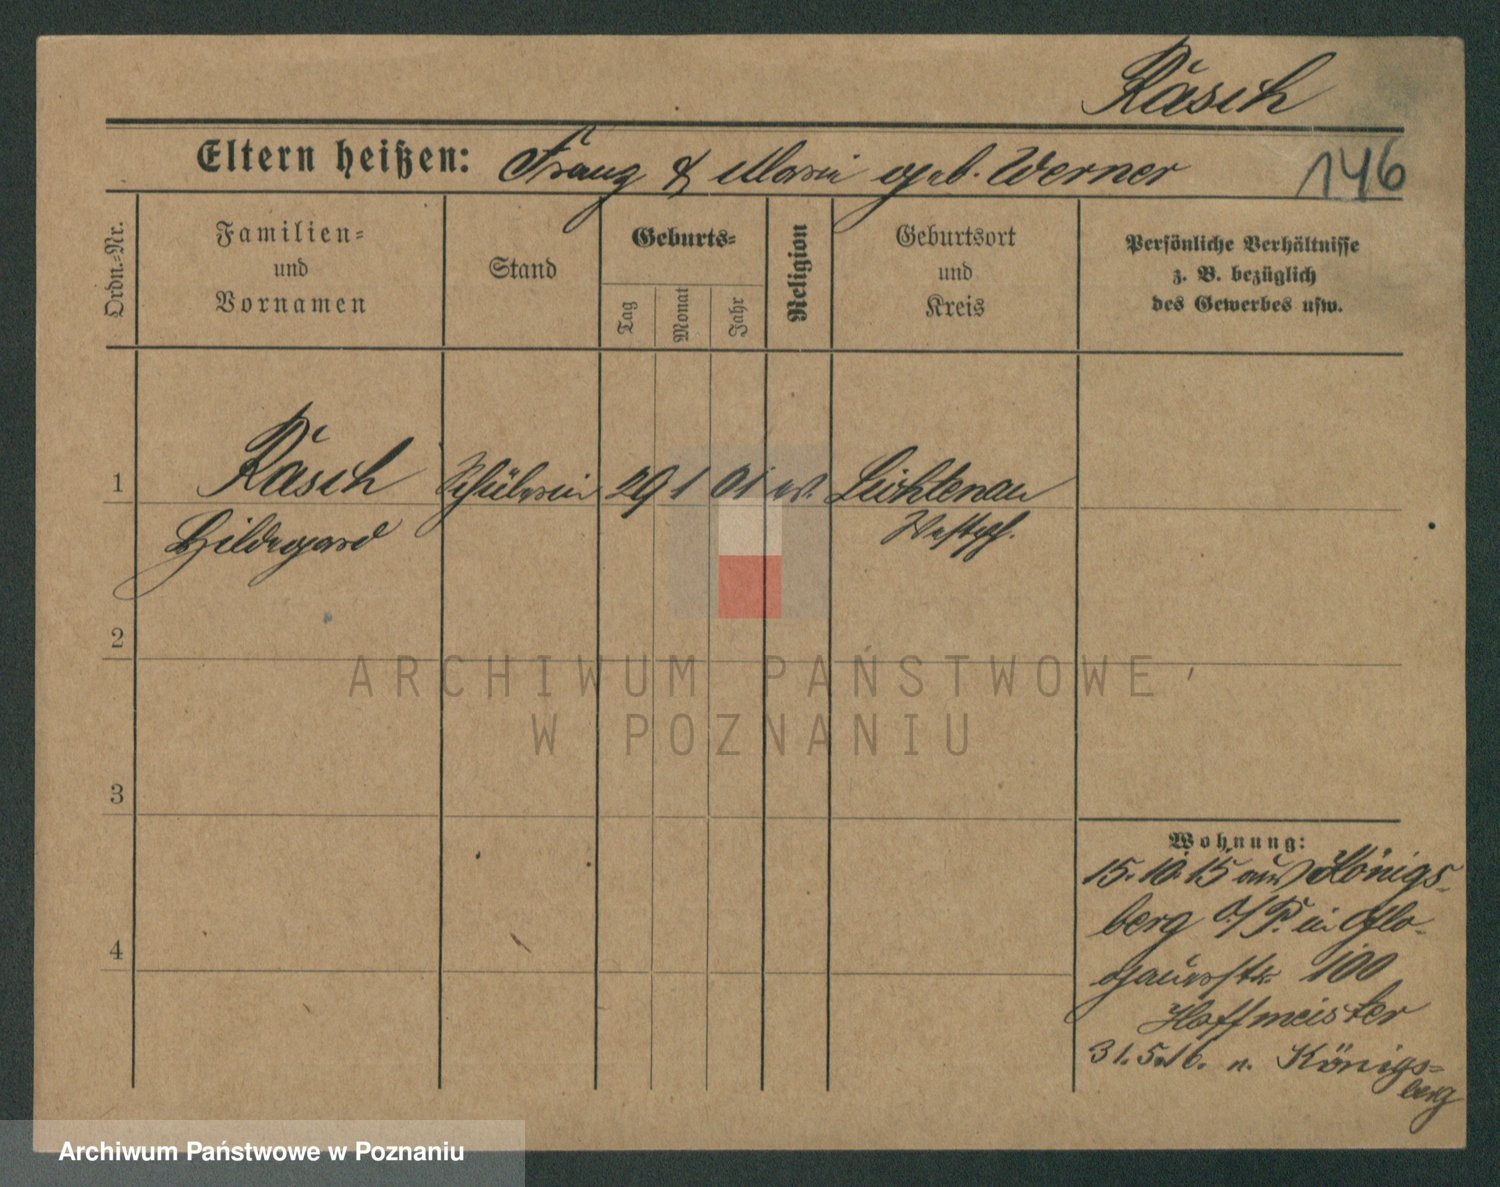 Räsch
Eltern heißen: Franz & Marie geb. Werner
146
Ordn.-Nr.
Familien-
und
Vornamen
Stand
Geburts-
Tag
Monat
Jahr
Religion
Geburtsort
und
Kreis
Persönliche Verhältnisse
z. B. bezüglich
des Gewerbes usw.
1 Räsch Schülerin 29 1 01 ev. Lichtenau
Hildegard Westpf.
2
3
4
ARCHIWUM PAŃSTWOWE
W POZNANIU
Wohnung:
15.10.15 aus Königs-
berg O/P. in Glo-
gauerstr. 100
Hoffmeister
31.5.16. n. Königs-
berg
Archiwum Państwowe w Poznaniu